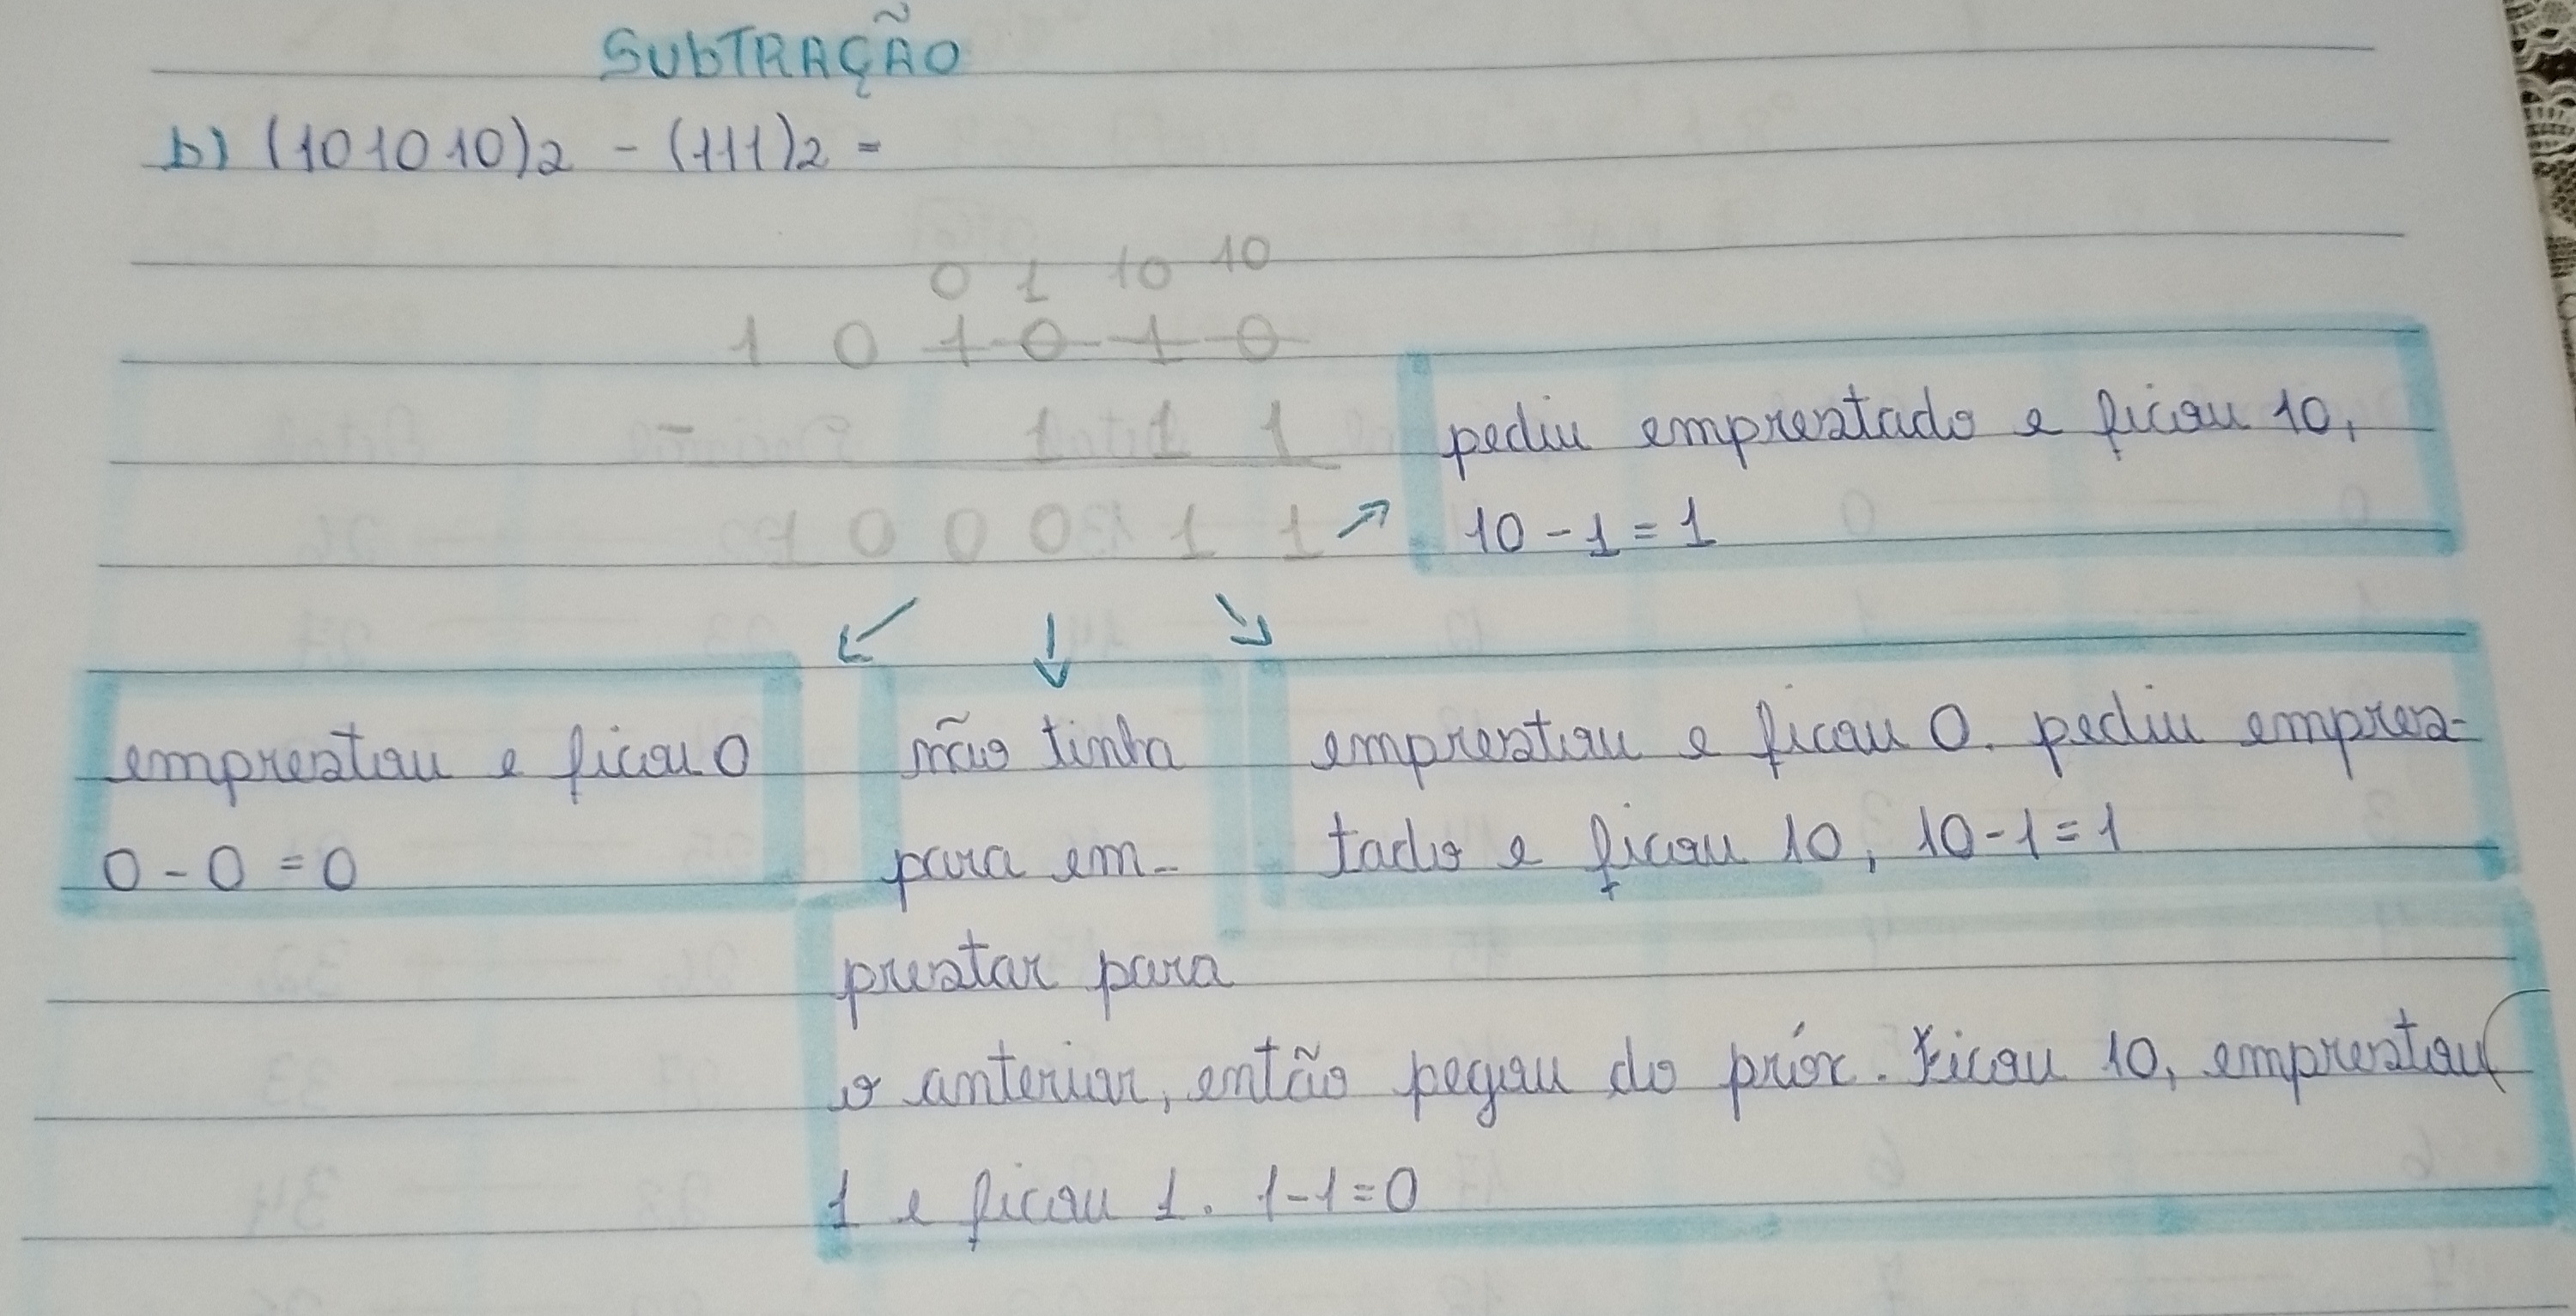 SUBTRAÇÃO
b) (101010)2 - (111)2 =
0 1 10 10
1 0 1 0 1 0
- 1 1 1
1 0 0 0 1 1
pediu emprestado e ficou 10,
10 - 1 = 1
emprestou e ficou 0
0 - 0 = 0
não tinha
para em-
prestar para
o anterior, então pegou do próx. Ficou 10, emprestou
1 e ficou 1. 1-1=0
emprestou e ficou 0. pediu empres-
tado e ficou 10, 10-1=1